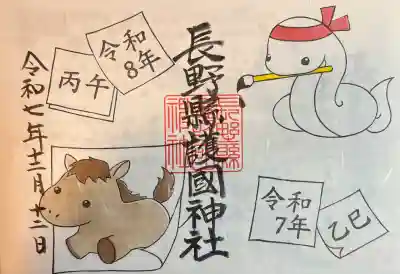 令和
8年
丙午
長野縣護國神社
令和七年十二月十二日
令和
7年
乙巳